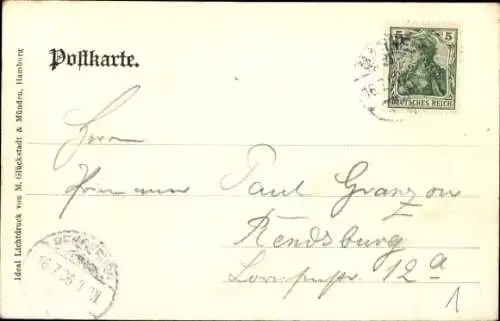 Postkarte.
5 5
DEUTSCHES REICH
Herrn
Paul Granzow
Rendsburg
12a
16.7.06.
1
Ideal Lichtdruck von M. Glückstadt & Münden, Hamburg